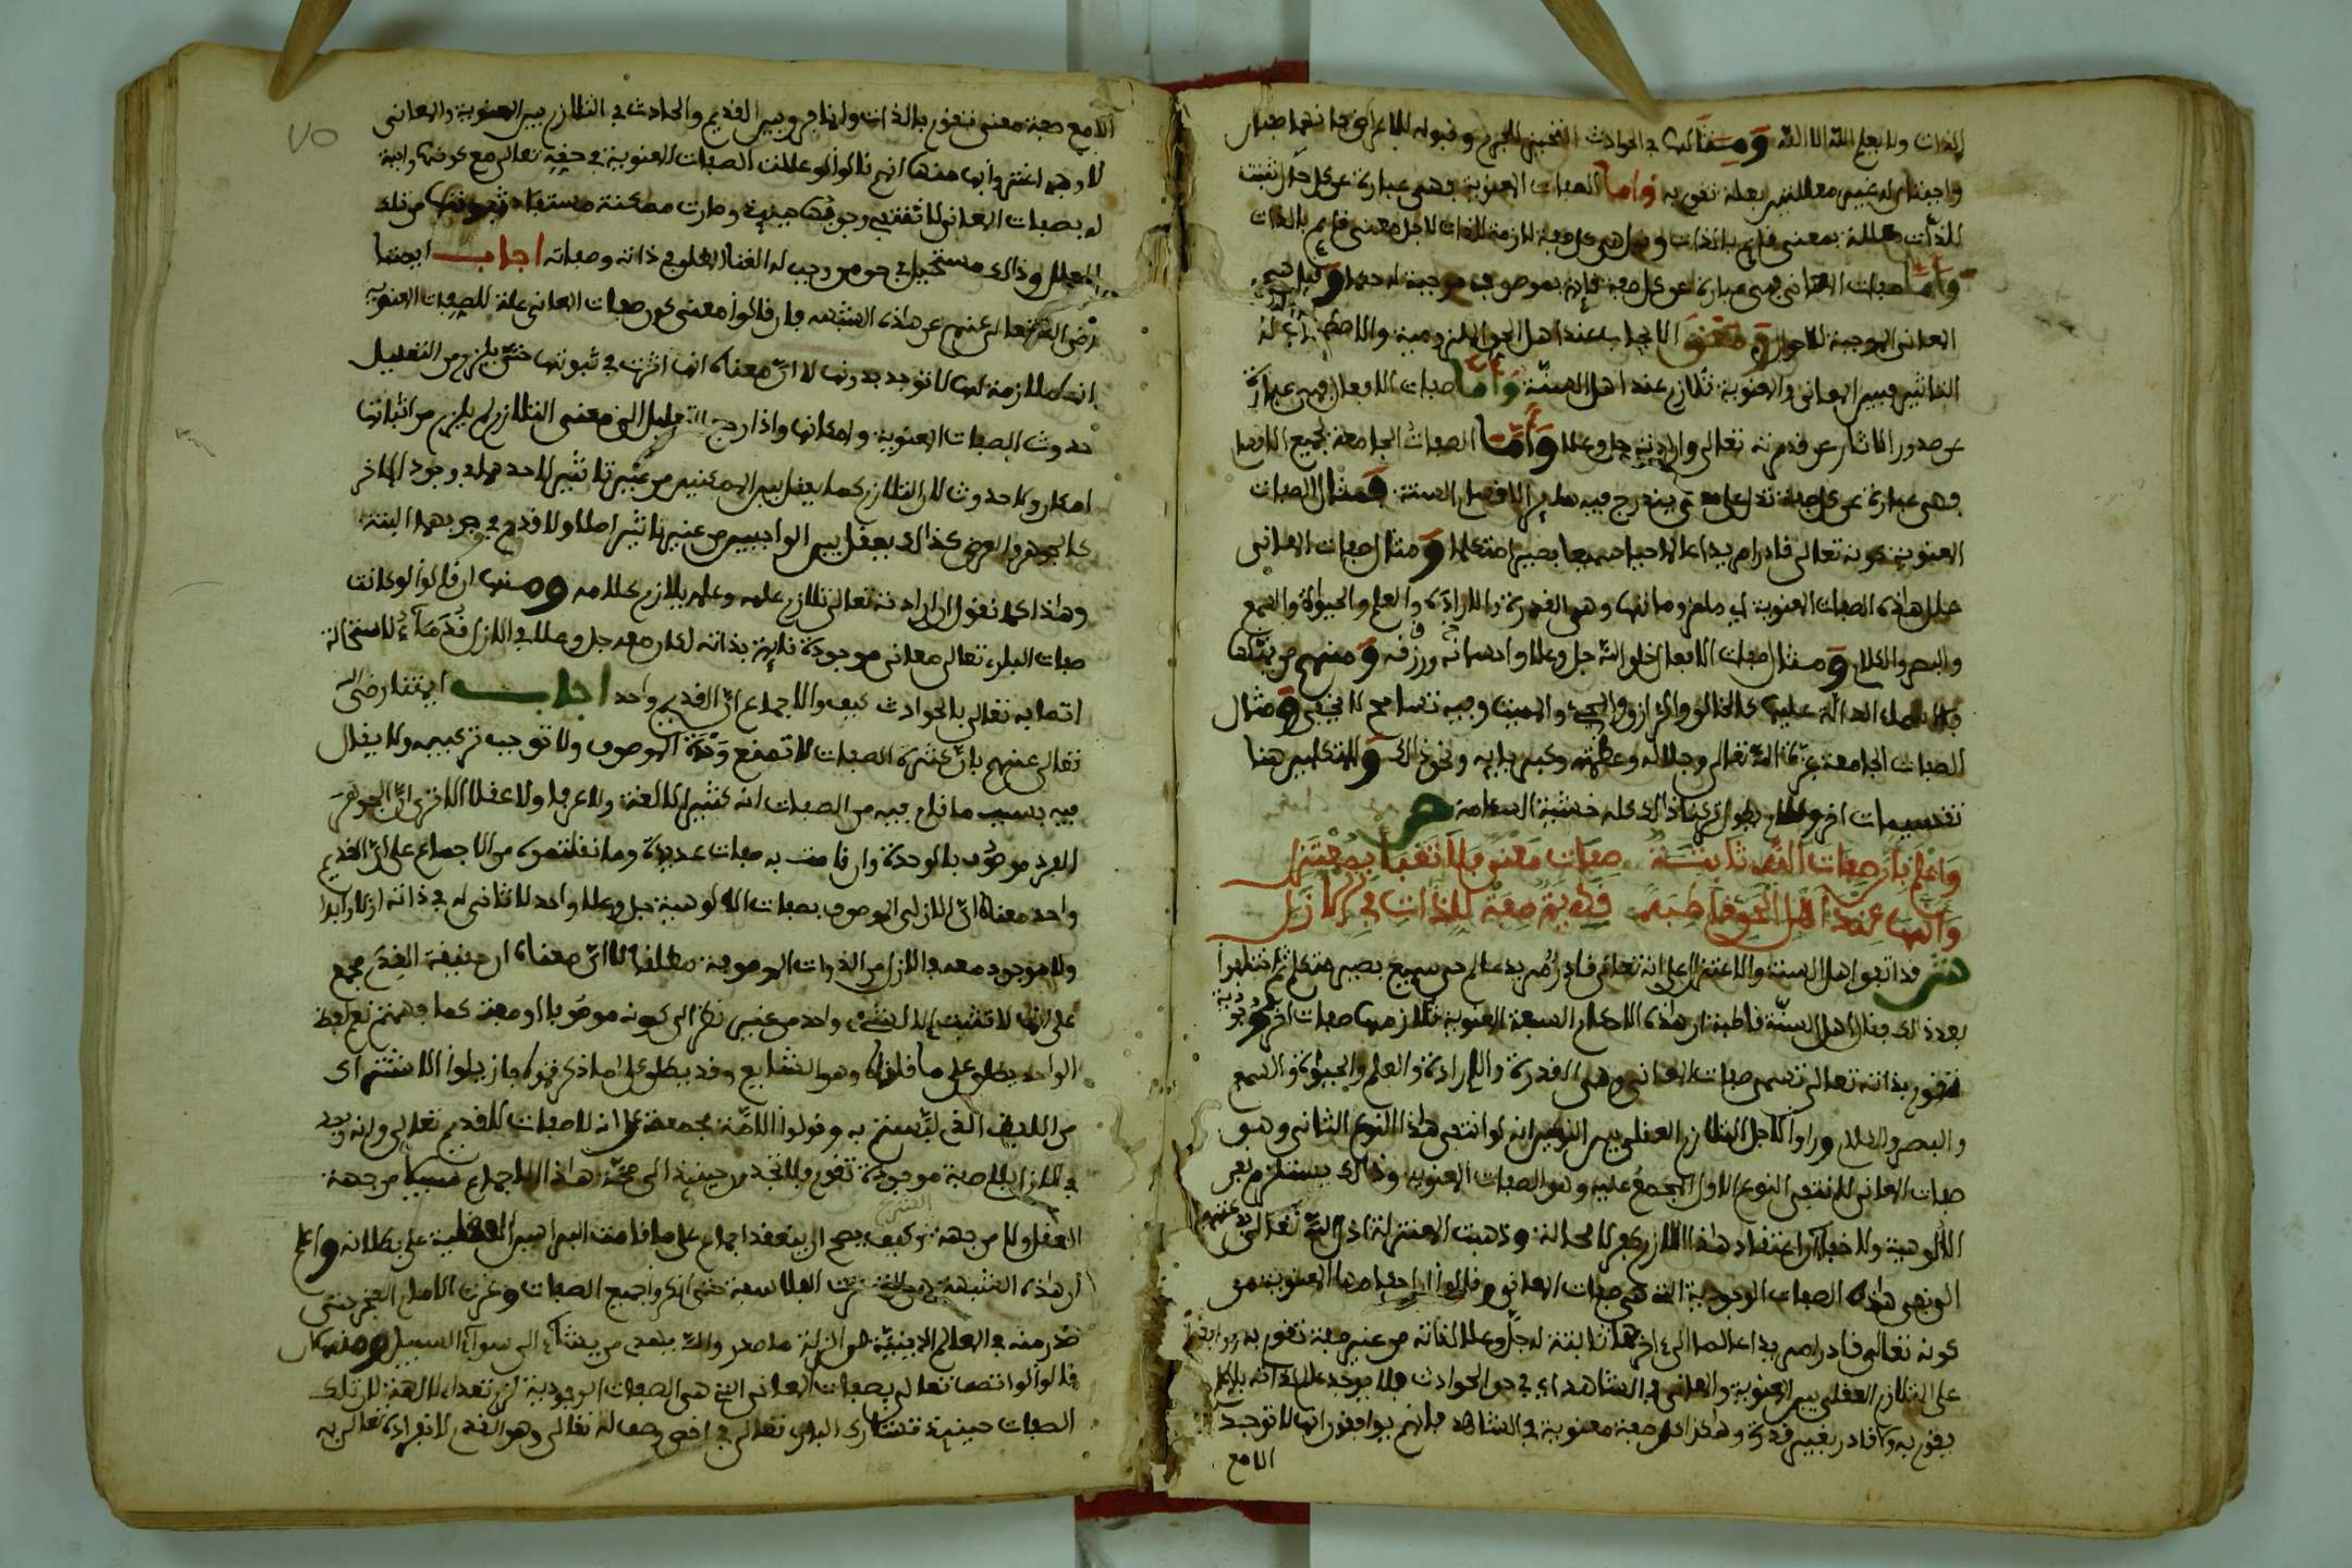 الذات ولا يعلم الله الا الله ومثالها في الحوادث التحيز للجرم وقبوله للاعراض فانهما صفتان
واجبتان له غير معللتين بعلة تقوم به واما الصفات المعنوية فهي عبارة عن كل حال تثبت
للذات معللة بمعنى قايم بالذات وقيل هي كل صفة لازمة للذات لاجل معنى قايم بالذات
واما صفات المعاني فهي عبارة عن كل صفة قايمة بموصوف موجبة له حكما وقيل هي
المعاني الموجبة للاحوال ومعنى الايجاب عند اهل الحق الملزومية
التاثير فبين المعاني والمعنوية تلازم عند اهل السنة واما صفات الافعال فهي عبارة
عن صدور الاثار عن قدرته تعالى وارادته جل وعلا واما الصفات الجامعة لجميع الاقسام
فهي عبارة عن كل صفة تدل على معنى يندرج فيه سائر الاقسام الستة ومثال الصفات
المعنوية كونه تعالى قادرا مريدا عالما حيا سميعا بصيرا متكلما ومثال صفات المعاني
علل هذه الصفات المعنوية اي ملزوماتها وهي القدرة والارادة والعلم والحيوة والسمع
والبصر والكلام ومثال صفات الافعال خلق الله جل وعلا واحسانه ورزقه ومنهم من يمثلها
بالاسماء الدالة عليها كالخالق والرازق والمحيي والمميت وفيه تسامح لا يخفى ومثال
الصفات الجامعة عزة الله تعالى وجلاله وعظمته وكبريايه ونحو ذلك وللمتكلمين هنا
تقسيمات اخر وكلام يطول تركنا ذلك كله خشية السآمة ص
واعلم بان صفات الله ثابتة صفات معنى فلا تعبأ بمعتزل
وانها عند اهل الحق قاطبة قديمة صفة للذات في الازل
ش قد اتفق اهل السنة والاعتزال على انه تعالى قادر مريد عالم حي سميع بصير متكلم ثم اختلفوا
بعد ذلك فقال اهل السنة قاطبة ان هذه الاحكام السبعة المعنوية تلازمها صفات اخر وجودية
تقوم بذاته تعالى تسمى صفات المعاني وهي القدرة والارادة والعلم والحيوة والسمع
والبصر والكلام وراوا لاجل التلازم العقلي بين النوعين انه لو انتفى هذا النوع الثاني وهو
صفات المعاني لانتفى النوع الاول المجمع عليه وهو الصفات المعنوية وذلك يستلزم نفي
الالوهية ولا خفاء ان اعتقاد هذا اللازم كفر لا محالة وذهبت المعتزلة اذل الله تعالى بدعتهم
الى نفي هذه الصفات الوجودية التي هي صفات المعاني وقالوا ان احكامها المعنوية من
كونه تعالى قادرا مريدا عالما الى اخرها ثابتة له جل وعلا لذاته من غير صفة تقوم به
على التلازم العقلي بين المعنوية والمعاني في الشاهد اي في حق الحوادث فلا يوجد عالم
يقوم به ولا قادر بغير قدرة وهكذا كل صفة معنوية في الشاهد فانهم يوافقون انها لا توجد
الا مع
الا مع صفة معنى تقوم بالذات وانما فرقوا بين القديم والحادث في التلازم بين المعنوية والمعاني
لاوجه اغتروا بها منها انهم قالوا لو عللت الصفات المعنوية في حقه تعالى مع كونها واجبة
له بصفات المعاني لانتفى وجوبها حينئذ وصارت ممكنة مستفاد ثبوتها من تلك
العلل وذلك مستحيل في حق من وجب له الغنا المطلق في ذاته وصفاته اجاب ايمتنا
رضي الله تعالى عنهم عن هذه الشبهة بان قالوا معنى كون صفات المعاني علة للصفات المعنوية
انها ملازمة لها لا توجد بدونها لا ان معناه انها اثرت في ثبوتها حتى يلزم من التعليل
حدوث الصفات المعنوية وامكانها واذا رجع التعليل الى معنى التلازم لم يلزم من اثباتها
امكان ولا حدوث لان التلازم كما يعقل بين الممكنين من غير تاثير لاحدهما في وجود الاخر
كالجوهر والعرض كذلك يعقل بين الواجبين من غير تاثير اصلا ولا قدح في وجوبهما البتة
وهذا كما نقول ان ارادته تعالى تلازم علمه وعلمه يلازم كلامه ومنها ان قالوا لو كانت
صفات الباري تعالى معاني موجودة قايمة بذاته لكان معه جل وعلا في الازل قدماء لاستحالة
اتصافه تعالى بالحوادث كيف والاجماع ان القديم واحد اجاب ايمتنا رضي الله
تعالى عنهم بان كثرة الصفات لا تمنع وحدة الموصوف ولا توجب تركيبه ولا يقال
فيه بسبب ما قام فيه من الصفات انه كثير لا لغة ولا عرفا ولا عقلا الا ترى ان الجوهر
الفرد موصوف بالوحدة وان قامت به صفات عديدة وما نقلتموه من الاجماع على ان القديم
واحد معناه ان الازلي الموصوف بصفات الالوهية جل وعلا واحد لا ثاني له في ذاته ازلا وابدا
ولا موجود معه في الازل من الذوات الموصوفة مطلقا لا ان معناه ان حقيقة القدم مجمع
على انها لا تثبت الا لشيء واحد من غير نظر الى كونه موصوفا او صفة كما فهمتم نعم لفظ
الواحد يطلق على ما قلناه وهو الشايع وقد يطلق على ما ذكرتموه فازيلوا الاشتراك
من اللفظ الذي لبستم به وقولوا الامة مجمعة على انه لا صفات للقديم تعالى وانه لا يوجد
في الازل صفة موجودة تقوم فلا نجد حينئذ الى صحة هذا الاجماع سبيلا من جهة
العقل ولا من جهة وكيف يصح ان ينعقد اجماع على ما قامت البراهين العقلية على بطلانه واعلم
ان هذه الشبهة هي التي غرت الفلاسفة حتى انكروا جميع الصفات وغرت الامام الفخر حتى
صدر منه في المعالم الدينية من الزلة ما صدر والله يهدي من يشاء الى سواء السبيل ومنها ان
قالوا لو اتصف تعالى بصفات المعاني التي هي الصفات الوجودية لزم تعدد الالهة لان تلك
الصفات حينئذ تشارك الباري تعالى في اخص وصف له تعالى وهو القدم لانفراده تعالى به